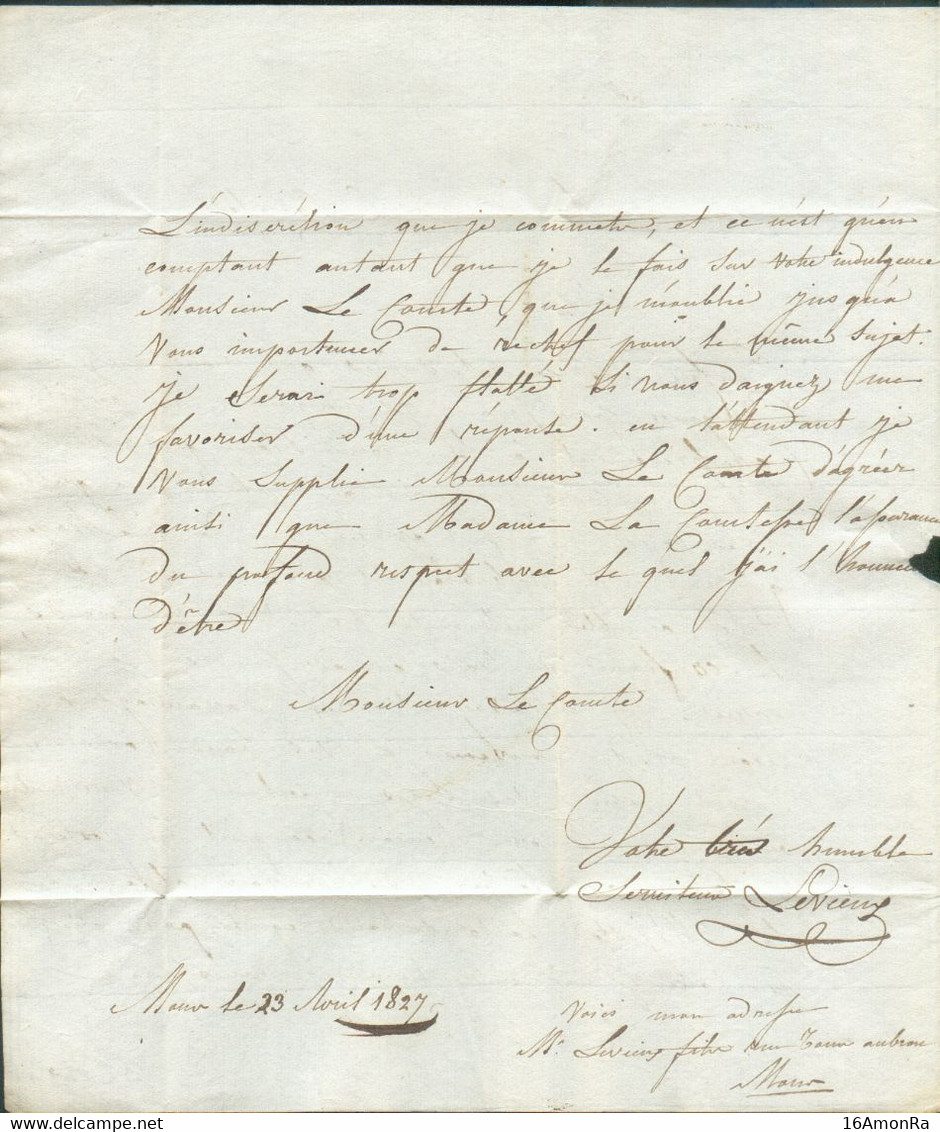 L'indiscrétion que je commets, et ce n'est qu'en
comptant autant que je le fais sur votre indulgence
Monsieur Le Comte que je m'oublie jusqu'à
Vous importuner de rechef pour le même sujet.
Je serai trop flatté si vous daignez me
favoriser d'une réponse. en l'attendant je
Vous supplie Monsieur Le Comte d'agréer
ainsi que Madame La Comtesse l'assurance
du profond respect avec le quel j'ai l'honneur
d'être
Monsieur Le Comte
Votre très humble
Serviteur Levieux
Mons le 23 Avril 1827
Voici mon adresse
Mr. Levieux fils rue
Mons
delcampe.net
16AmonRa